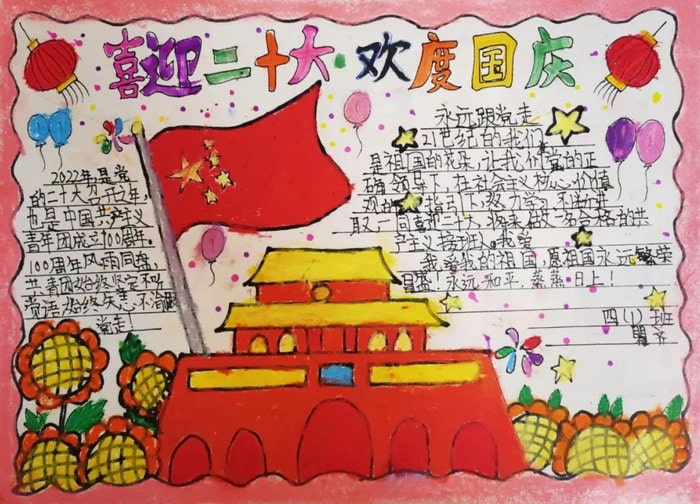 喜迎二十大·欢度国庆
2022年是党
的二十大召开之年,
也是中国共产主义
青年团成立100周年。
100周年风雨同舟
共青团始终坚定不
党语始终矢志不渝跟
党走!
永远跟党走
21世纪的我们
是祖国的花朵,让我们党的正
确领导下,在社会主义核心价值
观的 指引下,努力学习,不断进
取,一同喜迎二十大,将来做一名合格的共
产主义接班人。我爱
我爱我的祖国,愿祖国永远繁荣
昌盛!永远和平,蒸蒸日上!
四(1)班